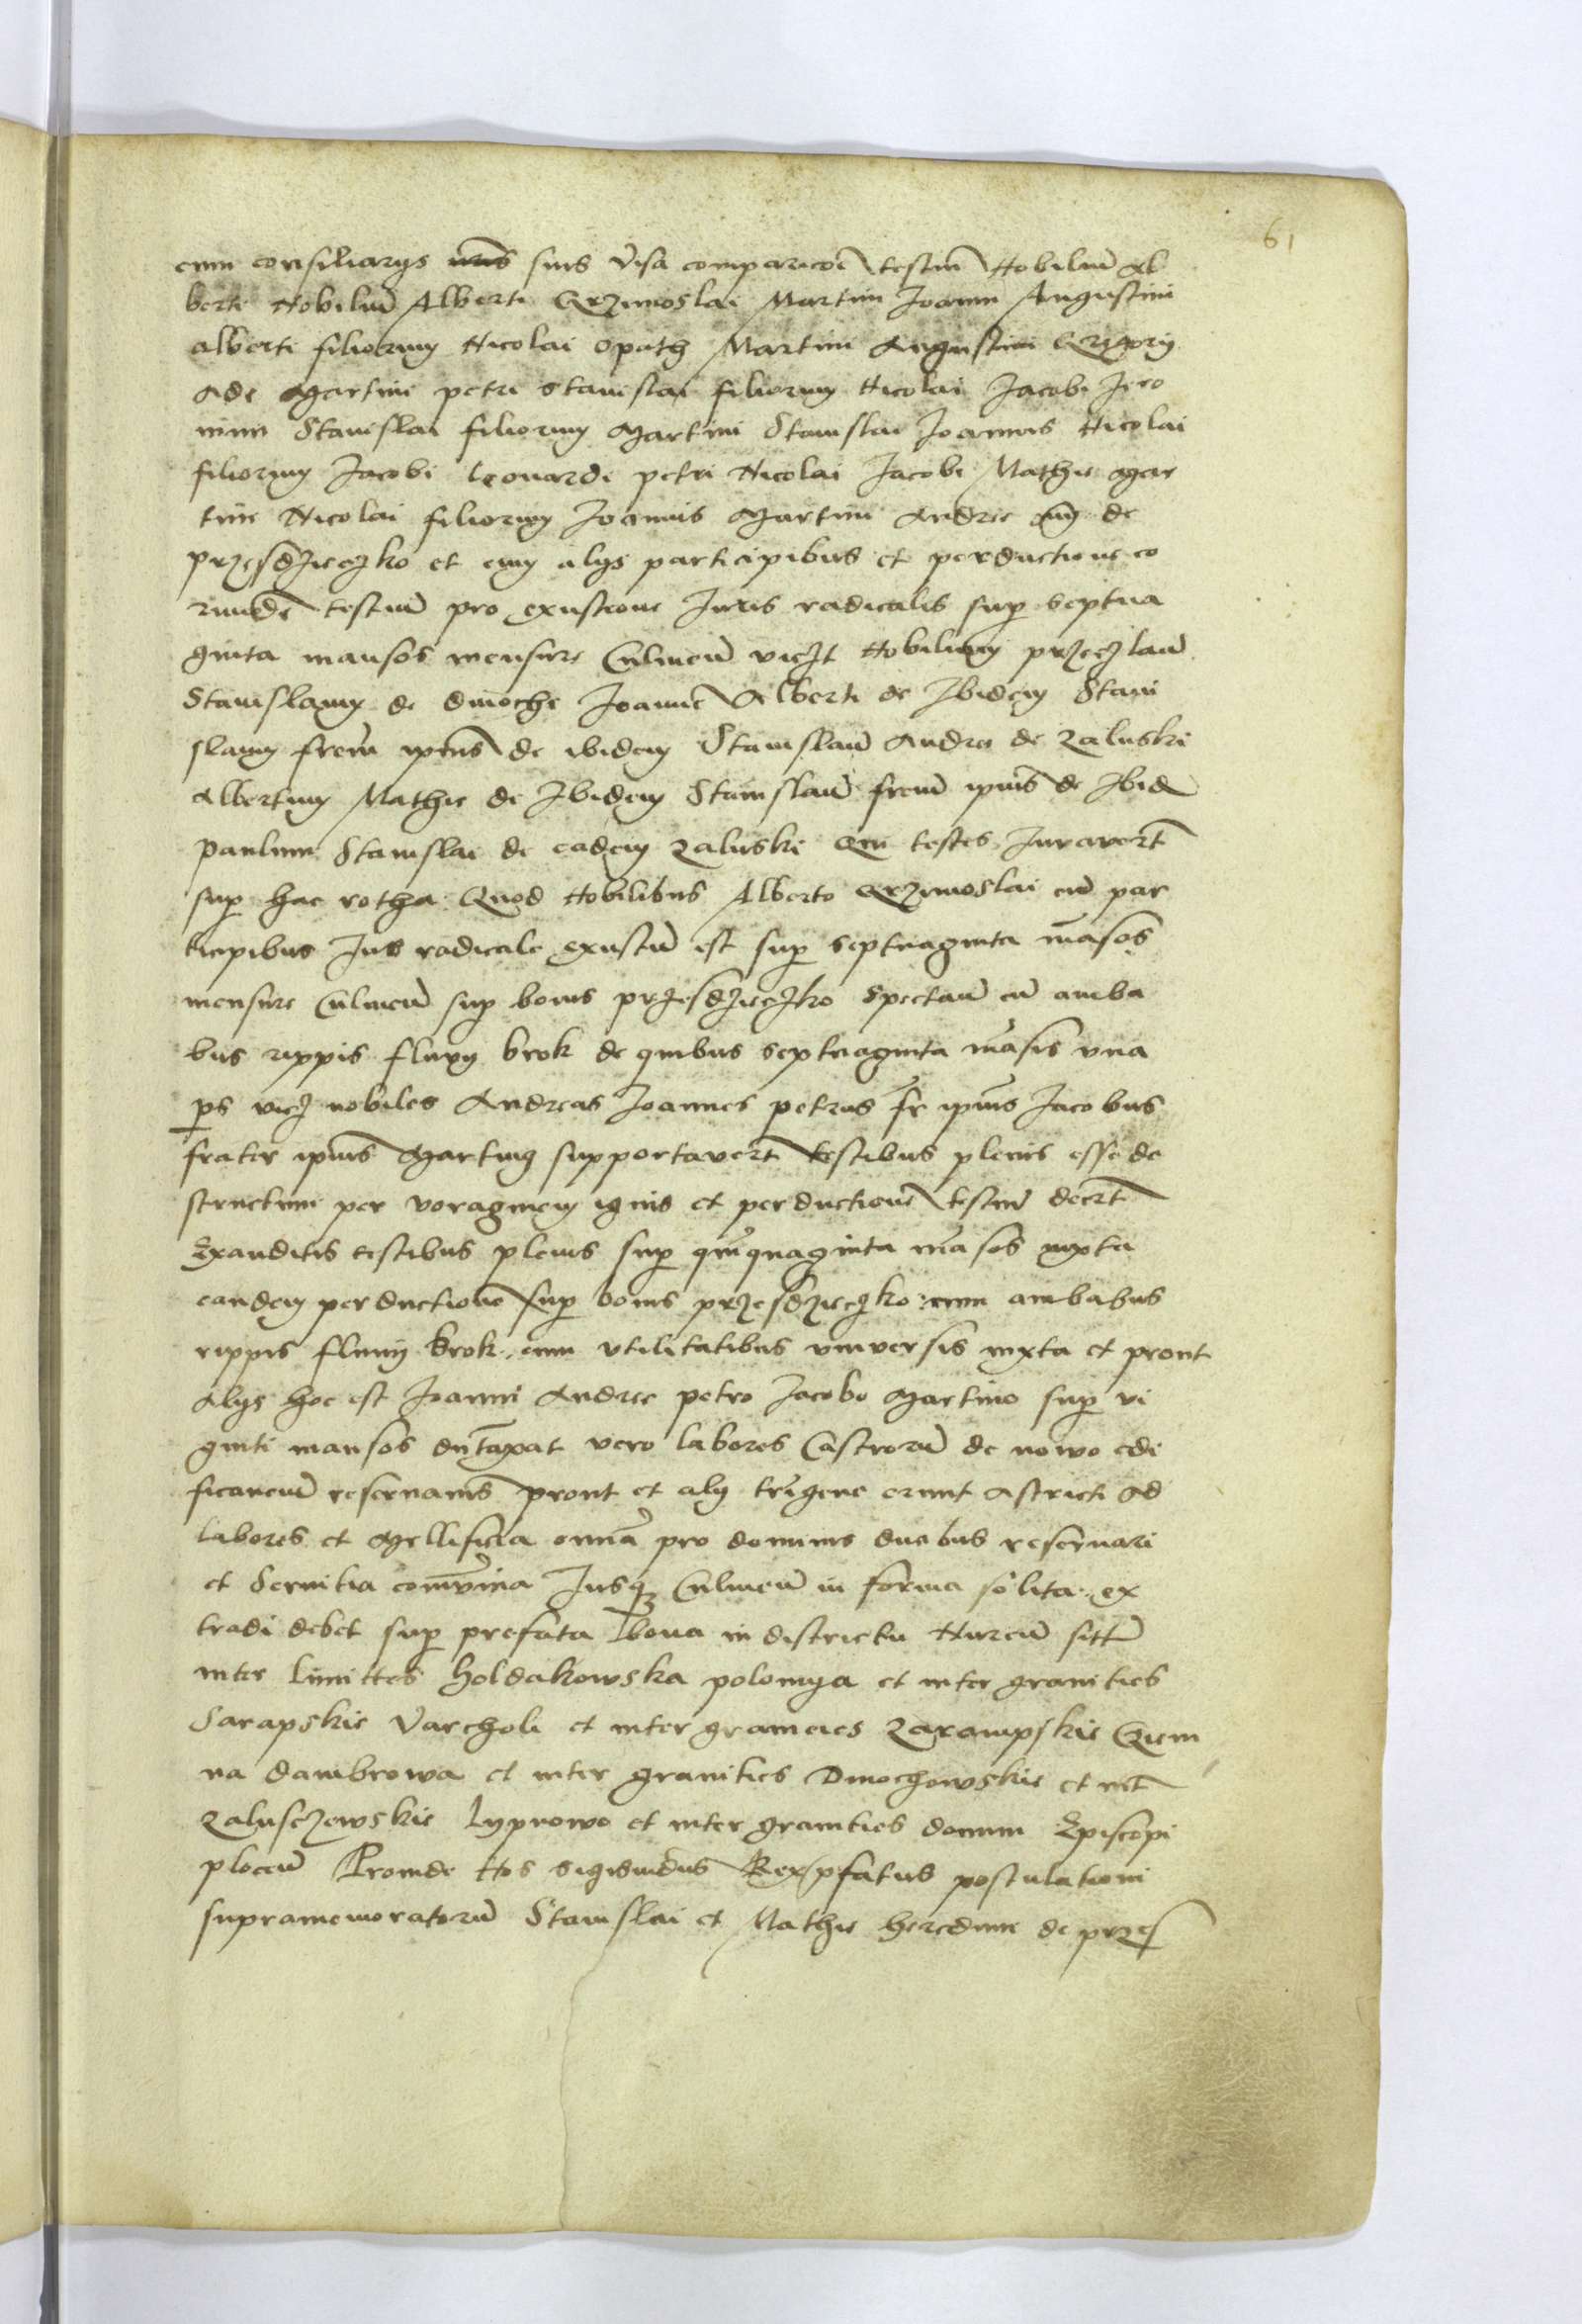 61
cum consiliarys suis visa comparicõe testiũ Nobiliũ Al
berti Nobiliũ Alberti Grzimoslai Martini Joanni Augustini
alberti filiorum Nicolai opath Martini Augustini Grzgorii
Ade Martini petri Stanislai filiorum Nicolai Jacobi Jero
nimi Stanislai filiorum Martini Stanislai Joannis Nicolai
filiorum Jacobi Leonardi petri Nicolai Jacobi Mathie Mar
tini Nicolai filiorum Joannis Martini Andree de
przesdzieczko et cum alys participibus et perductione eo
rundẽ testiũ pro exustione Juris radicalis sup septua
ginta mansos mensure Culmeñ viczt Nobilium przeczlaũ
Stanislaum de dmoche Joannẽ Alberti de Ibidem Stani
slaum frem ipius de ibidem Stanislaũ Andree de Zaluski
Albertum Mathie de Ibidem Stanislaũ frem ipius de Ibid
paulum Stanislai de eadem Zaluski Qui testes Juravert
sup hac rotha Quod Nobilibus Alberto Grzimoslai cũ par
ticipibus Jus radicale exustũ est sup septuaginta mãsos
mensure Culmeñ sup bonis przesdzieczko Spectañ cũ amba
bus rippis fluvy brok de quibus septuaginta mãsis vna
ps vicz nobiles Andreas Joannes petrus fr ipius Jacobus
frater ipius Martinus supportavert testibus plenis esse de
structum per voraginem ignis et perductionẽ testiũ decrt
Exauditis testibus plenis sup quĩquaginta mãsos iuxta
eandem perductionẽ sup bonis przesdzieczko cum ambabus
rippis fluuy brok cum vtilitatibus vniversis iuxta et prout
alys hoc est Joanni Andree petro Jacobo Martino sup vi
ginti mansos duntaxat vero labores Castrorũ de nowo edi
ficaneũ reseruamus prout et aly terrigene erunt astricti ad
labores et Mellificia omia pro dominis duabus reseruari
et Seruitia Jusq Culmeñ in forma solita ex
tradi debet sup prefata bona in districtu Nureñ sitt
inter limittes holdakowska polomya et inter granities
Sarapskie Varcholi et inter granicies Zarampskie Cziem
na dambrowa et inter granities Dmochowskie et int
Zalusczewskie lypnowo et inter granities domini Episcopi
ploceñ Proinde Nos sigismũdus Rex pfatus postulationi
supramemoratorũ Stanislai et Mathie heredum de przes